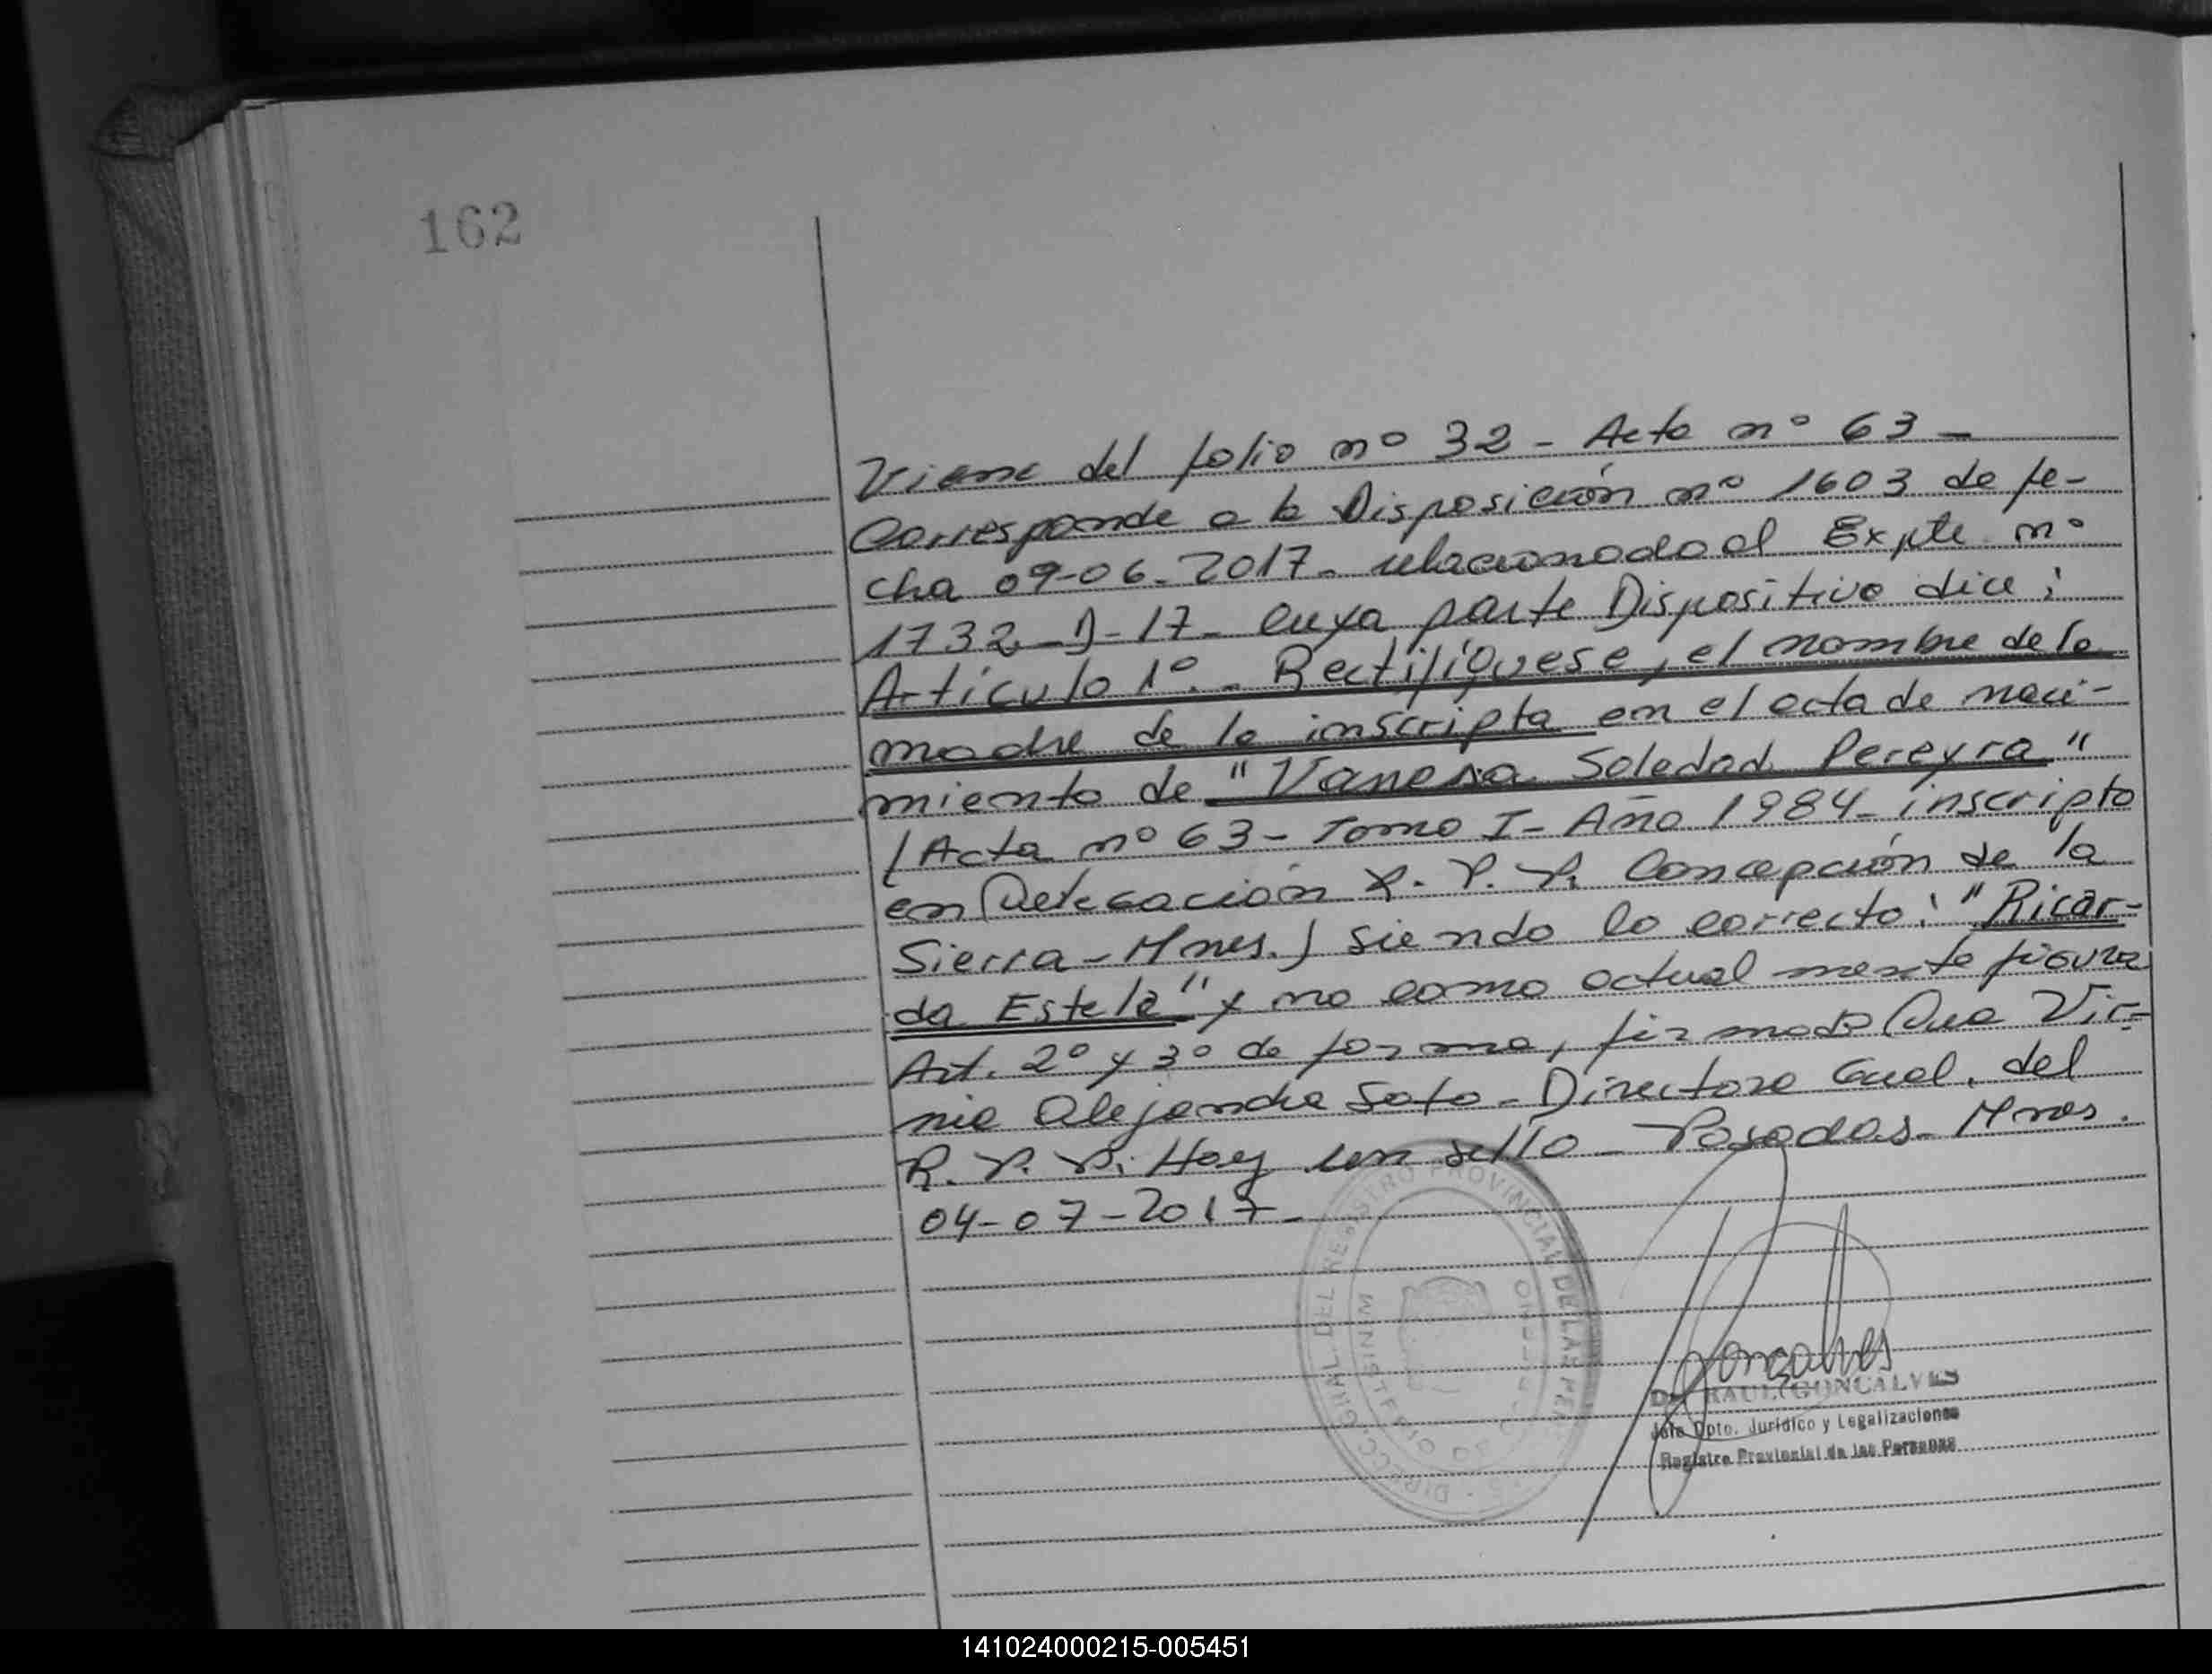 162
Viene del folio nº 32 - Acta nº 63 -
Corresponde a la Disposición nº 1603 de fe-
cha 09-06-2017- relacionado al Expte nº
1732-D-17- cuya parte Dispositiva dice:
Artículo 1º.- Rectifíquese, el nombre de la
madre de la inscripta en el acta de naci-
miento de "Vanesa Soledad Pereyra"
(Acta nº 63 - Tomo I - Año 1984 - inscripto
en Delegación R. P. P. Concepción de la
Sierra - Mnes.) siendo lo correcto: "Ricar-
da Estela" y no como actual mente figura
Art. 2º y 3º de forma, firmado Dra Vir-
nia Alejandra Soto - Directora Gral. del
R. P. P. Hay un sello - Posadas - Mnes.
04-07-2017-
DIRECC. GRAL. DEL REGISTRO PROVINCIAL DE LAS PER
MINISTERIO DE GOBIERNO
Goncalves
Dr. RAUL GONCALVES
Jefe Dpto. Jurídico y Legalizaciones
Registro Provincial de las Personas
141024000215-005451